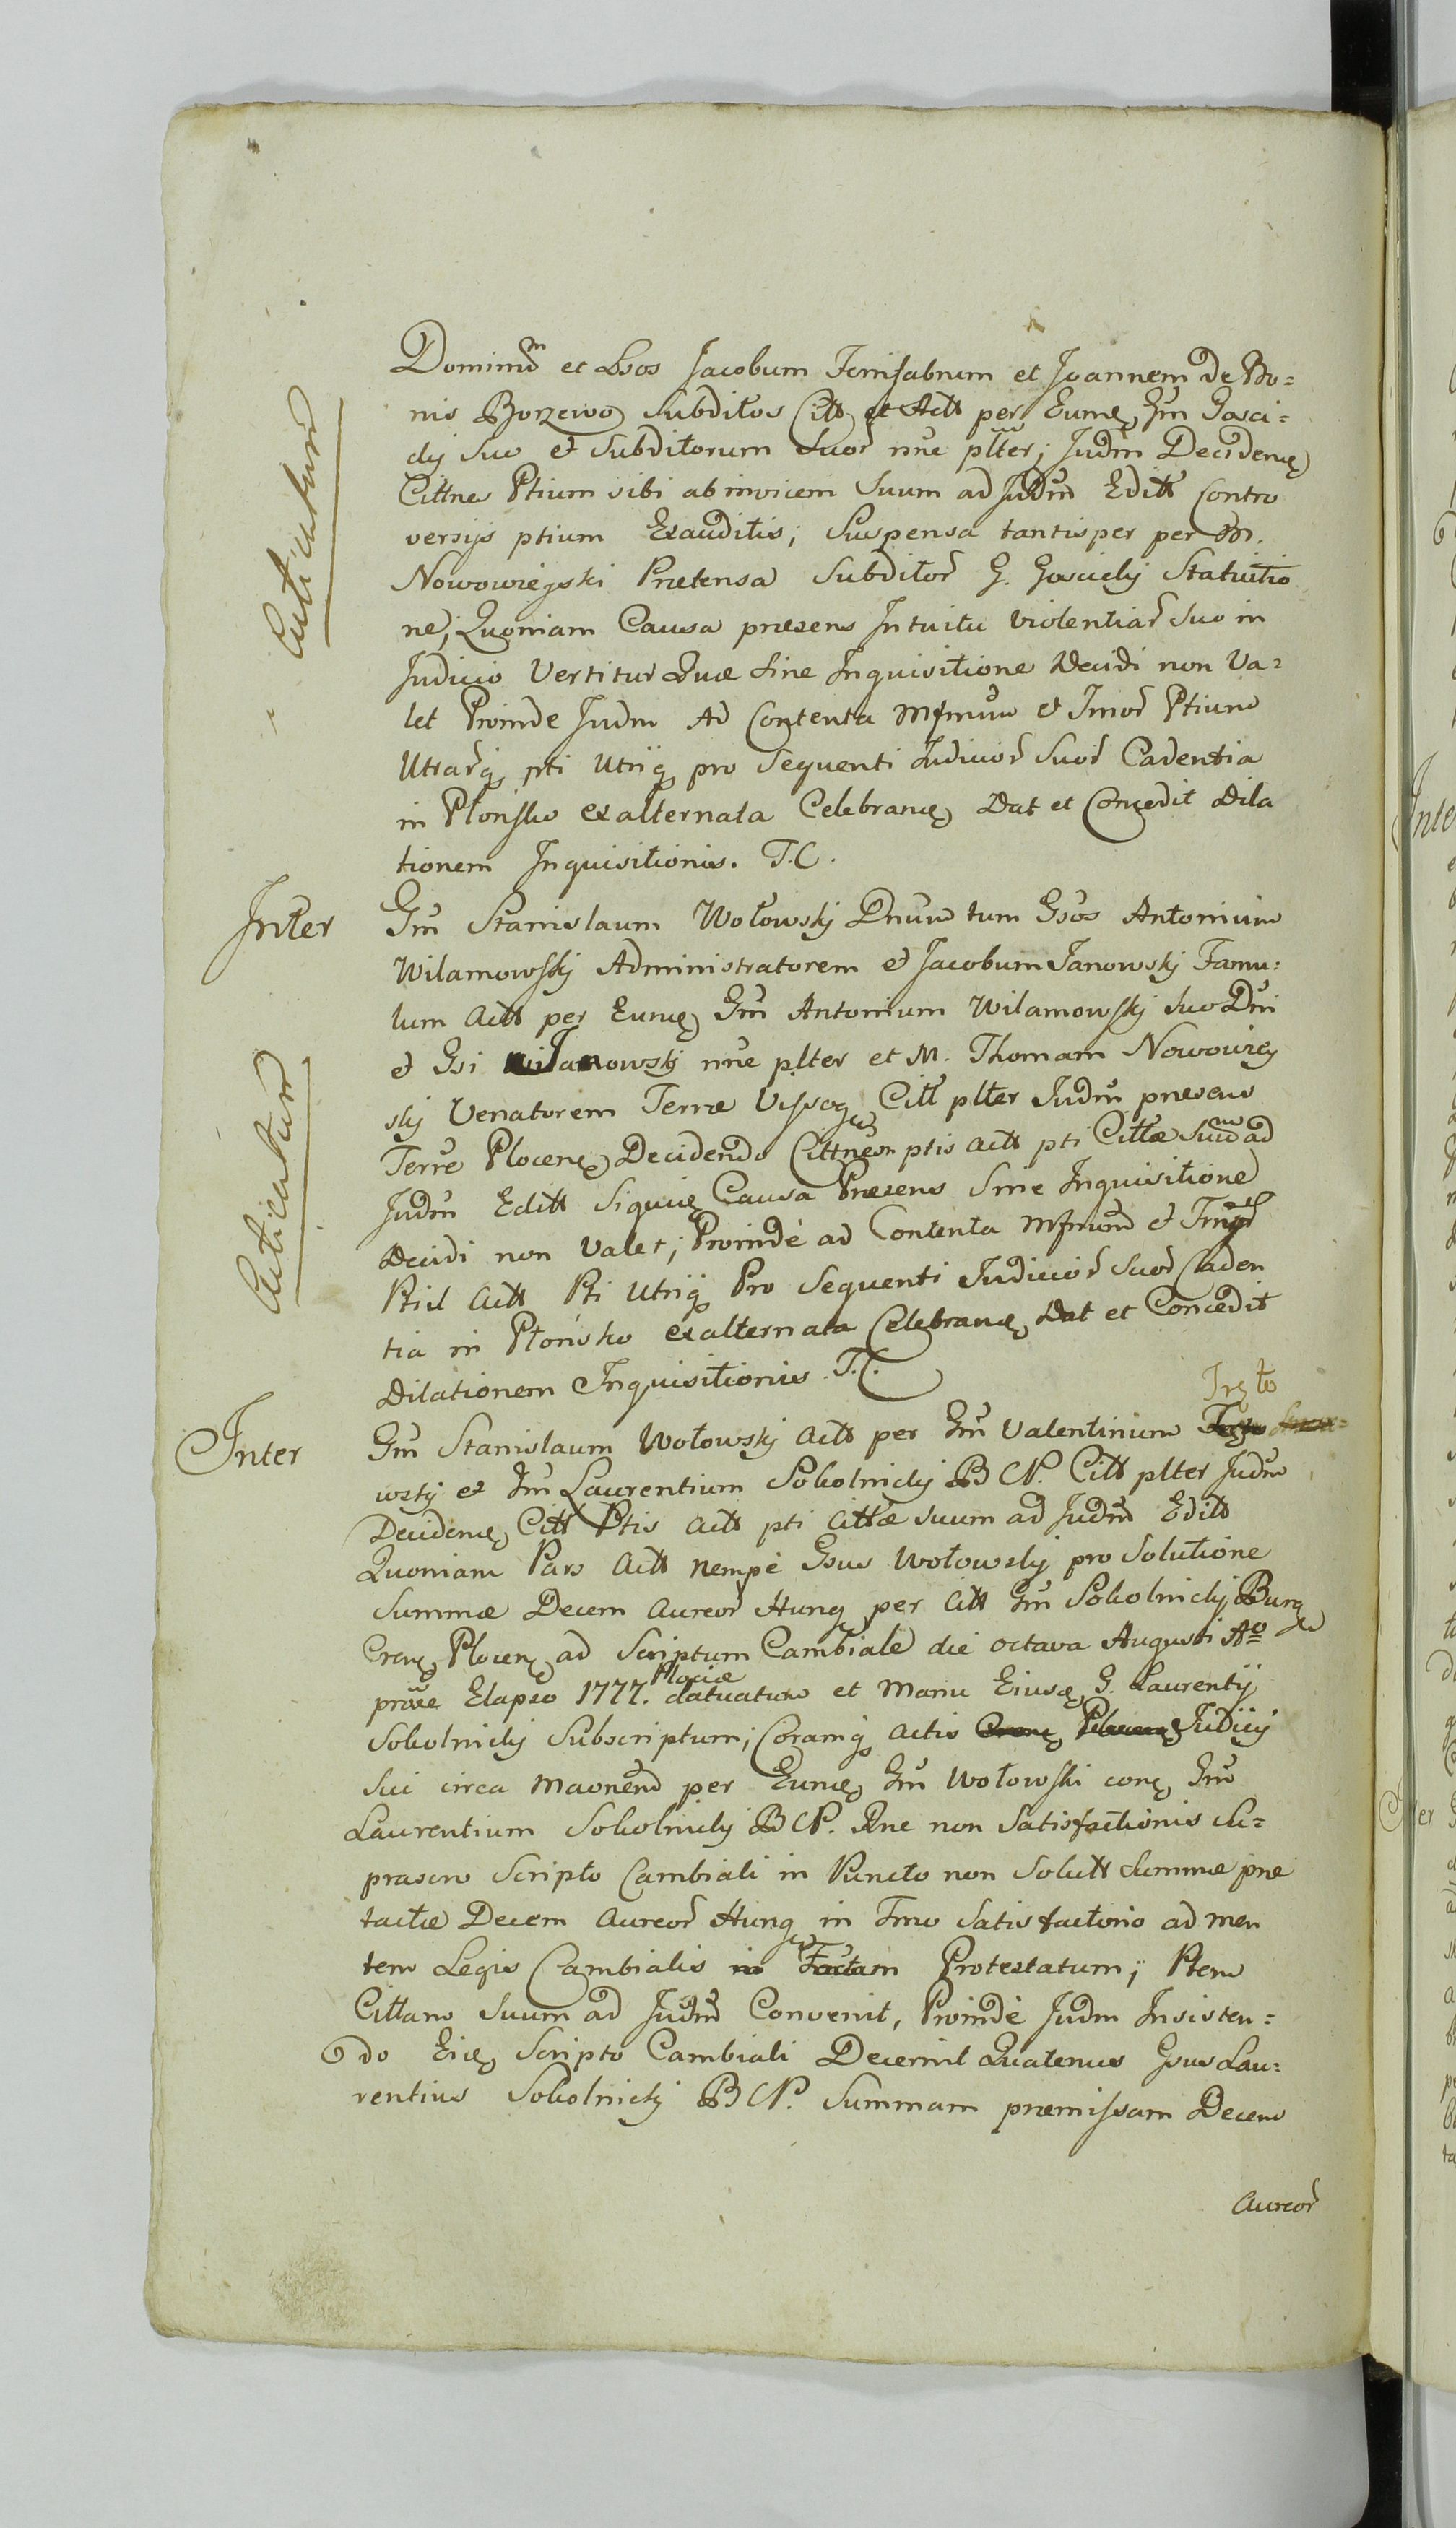 Dominũm et Lsos Jacobum Ferrifabrum et Joannem de Bo=
nis Borzewo Subditos Citt et Actt per Eumę Gm Gosci=
cky Suo et Subditorum Suor nne plter; Judm Decidenę
Cittnes Ptium sibi ab invicem Suum ad Judm Editt Contro
versijs ptium Exauditis; Suspensa tantisper per M.
Nowowieyski Prætensa Subditor G. Goscicky Statuitio
ne; Quoniam Causa præsens Intuitu violentiar Suo in
Judicio Vertitur Quæ Sine Inquisitione Decidi non Va=
let Proinde Judm Ad Contenta Mfmum et Tmor Ptium
Utrarq pti Utriq pro Sequenti Judicior Suor Cadentia
in Płonsko ex alternata Celebranę Dat et Concedit Dila
tionem Inquisitionis. T.C.
Inter Gm Stanislaum Wołowskj Dnum tum Gsos Antonium
Wilamowskj Administratorem et Jacobum Janowskj Famu=
lum Actt per Eumę Gm Antonium Wilamowskj Suo Dni
et Gsi Janowskj nne plter et M. Thomam Nowowiey
skj Venatorem Terræ Vissog Citt plter Judm præsens
Terræ Plocenę Decidendo Cittnem ptis Actt pti Cittæ Suum ad
Judm Editt Siquię Causa Præsens Sine Inquisitione
Decidi non Valet; Proindè ad Contenta Mfmum et Tmor
Ptis Actt Pti Utriq Pro Sequenti Judicior Suor Caden
tia in Płońsko ex alternata Celebranę Dat et Concedit
Dilationem Inquisitionis. T.C.
Inter Gm Stanislaum Wołowskj Actt per Gm Valentinum Tręto
wskj et Gm Laurentium Sokolnickj B C P. Citt plter Judm
Decidenę Citt Ptis Actt pti Cittæ Suum ad Judm Editt
Quoniam Pars Actt nempè Gsus Wołowskj pro Solutione
Summæ Decem Aureor Hung per Citt Gm Sokolnickj Burg
Crenę Plocenę ad Scriptum Cambiale die octava Augusti Ao
præe Elapso 1777. Plociæ datuatum et Manu Eiusę G. Laurentij
Sokolnickj Subscriptum; Coramq Actis Judicij
Sui circa Maonem per Eumę Gm Wołowski conę Gm
Laurentium Sokolnickj B C P. Rne non Satisfactionis Su=
prascro Scripto Cambiali in Puncto non Solutt Summæ præ
tactæ Decem Aureor Hung in Tmo Satisfactorio ad men
tem Legis Cambialis Factam Protestatum; Ptem
Cittam Suum ad Judm Convenit, Proindè Judm Insisten=
do Eię Scripto Cambiali Decernit Quatenus Gsus Lau=
rentius Sokolnickj B C P. Summam præmissam Decem
Aureor
Articatum
Articatum